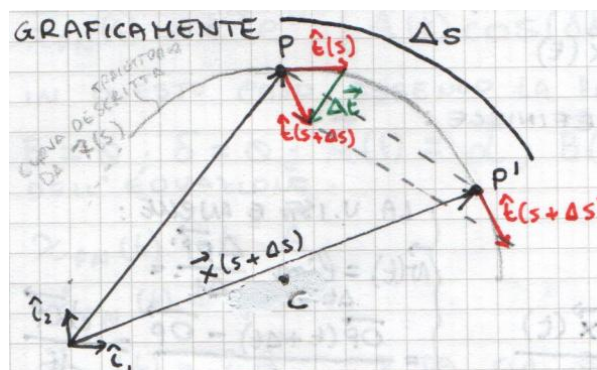 GRAFICAMENTE
Δs
P
t̂(s)
TRAIETTORIA
CURVA DESCRITTA
DA
Δt⃗
t̂(s+Δs)
P'
t̂(s+Δs)
x⃗(s+Δs)
C
î₂
î₁